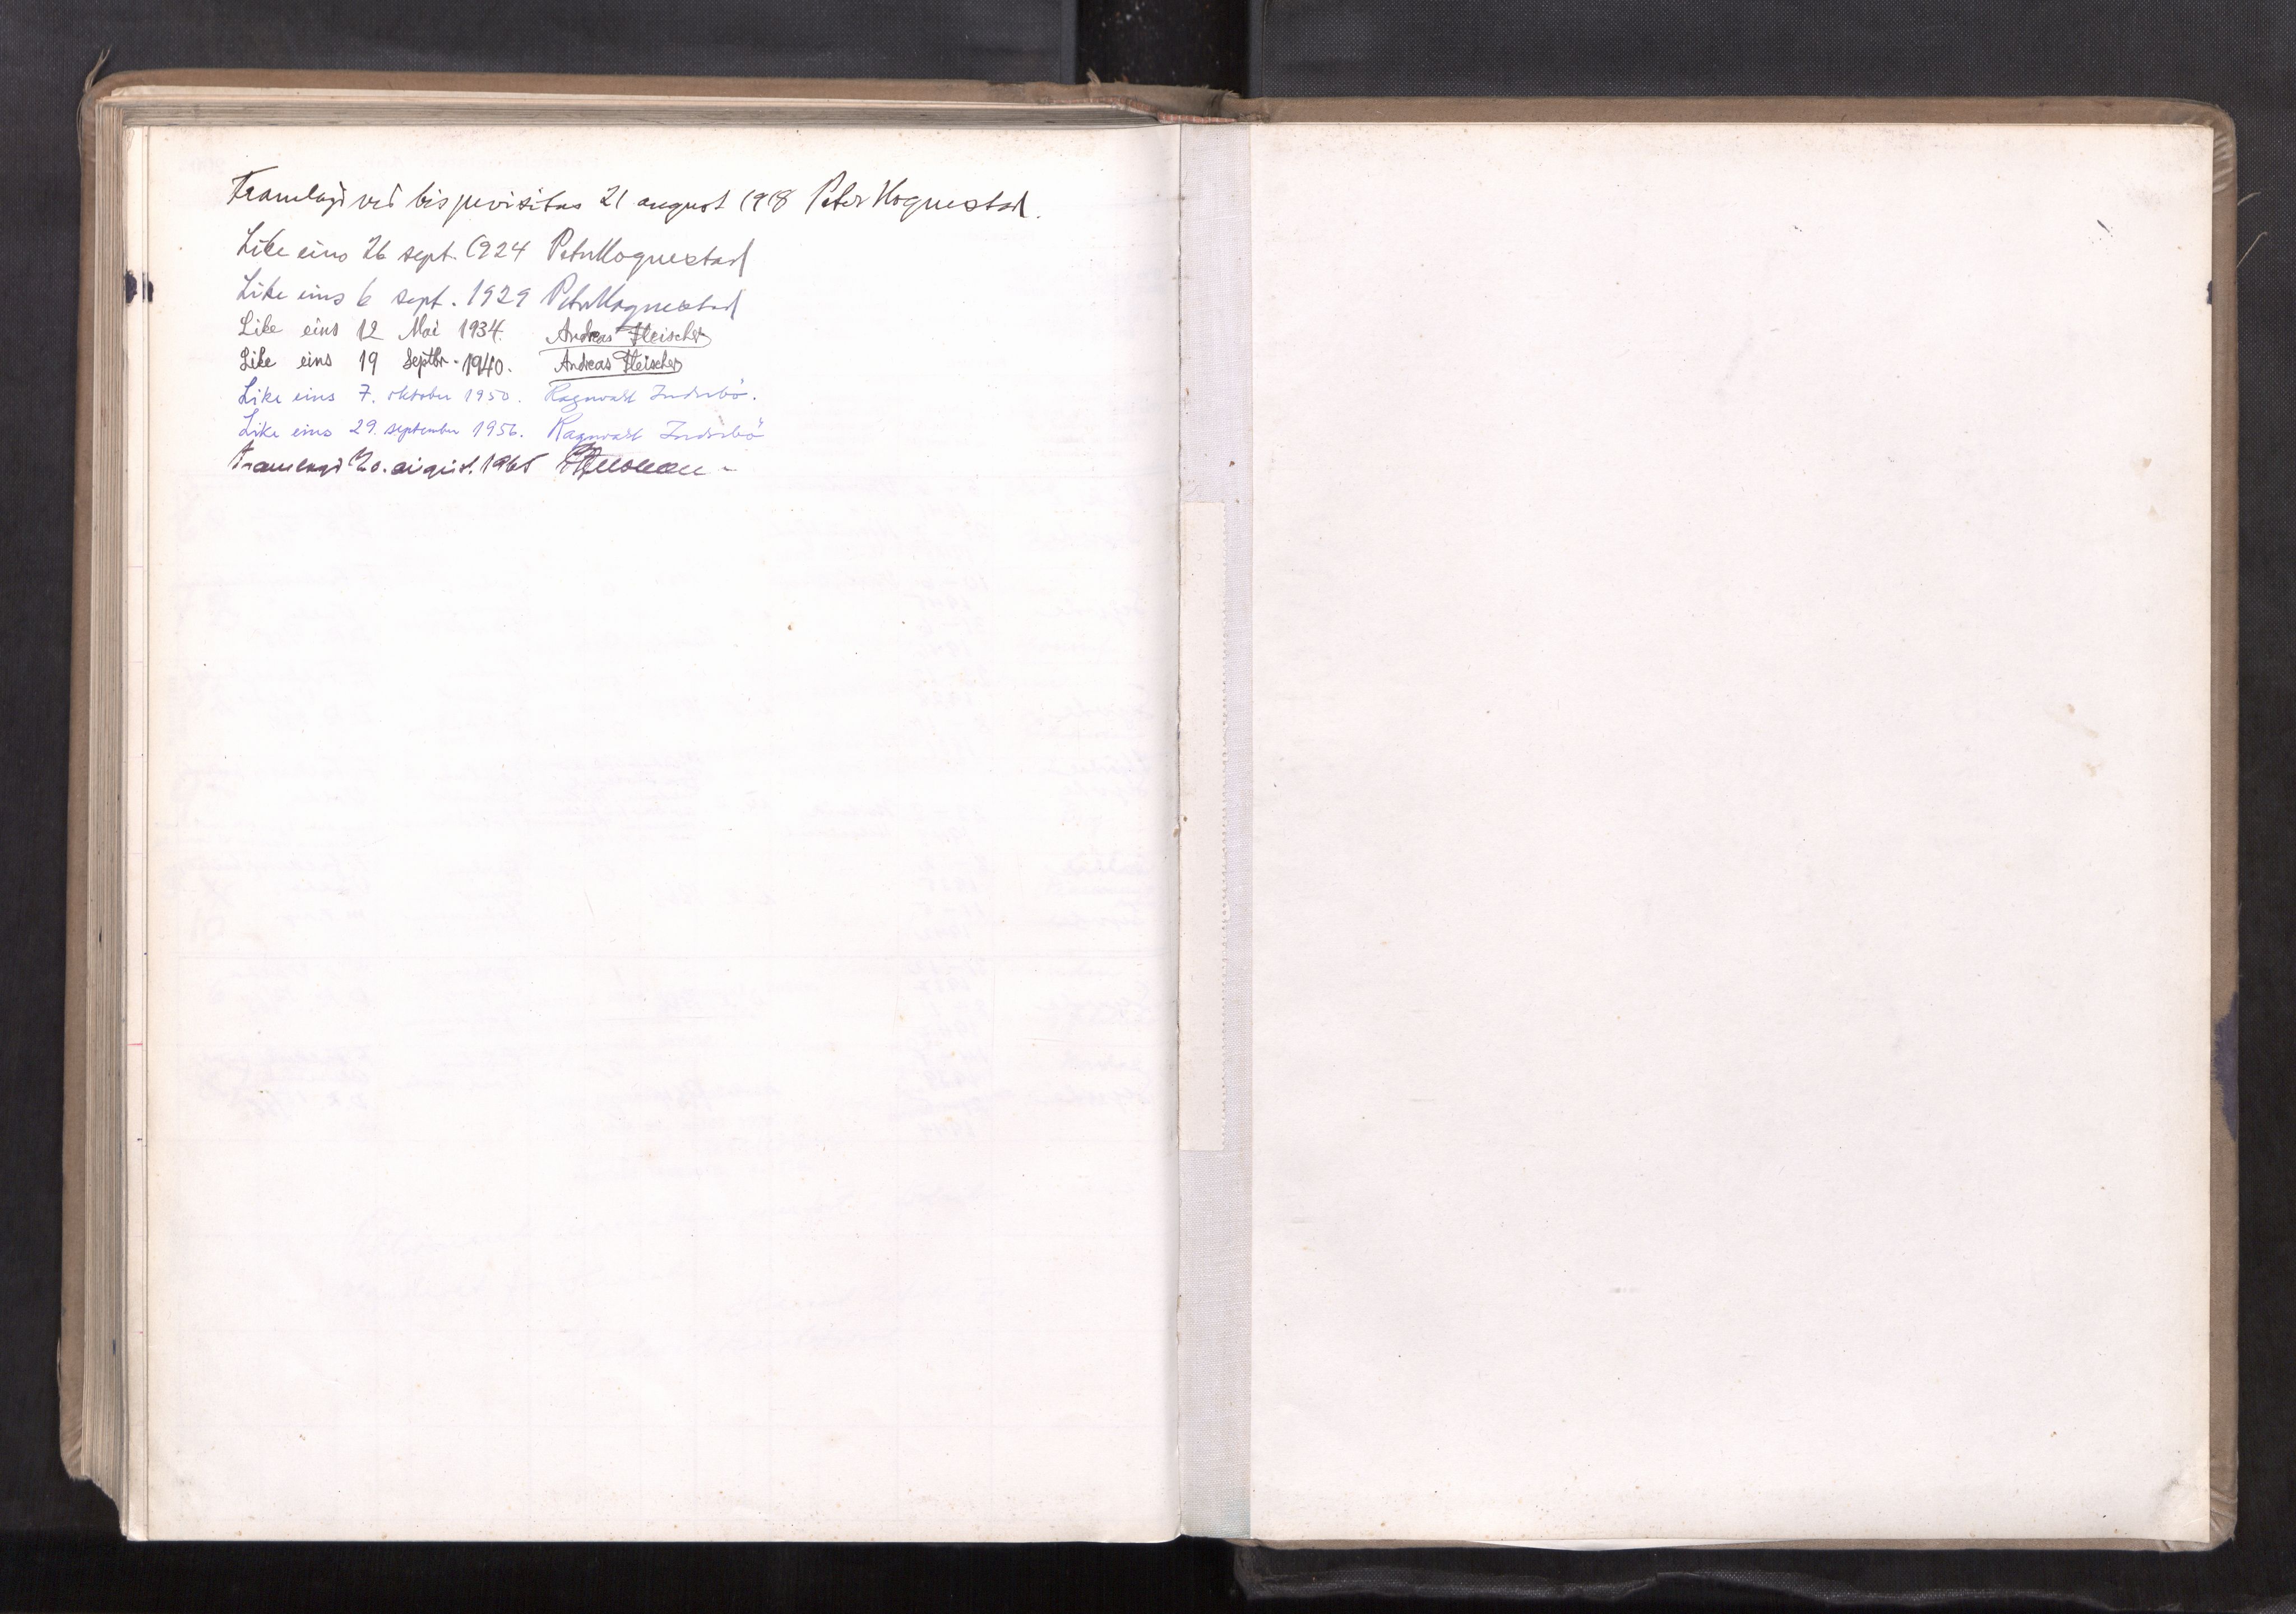 Framlagd ved bispevisitas 21 august 1918 Peter Hognestad.
Like eins 26 sept. 1924 Peter Hognestad
Like eins 6 sept. 1929 Peter Hognestad
Like eins 12 Mai 1934. Andreas Fleischer
Like eins 19 Septbr. 1940. Andreas Fleischer
Like eins 7. oktober 1950. Ragnvald Indrebö.
Like eins 29. september 1956. Ragnvald Indrebö
Framlagd 20. august. 1965